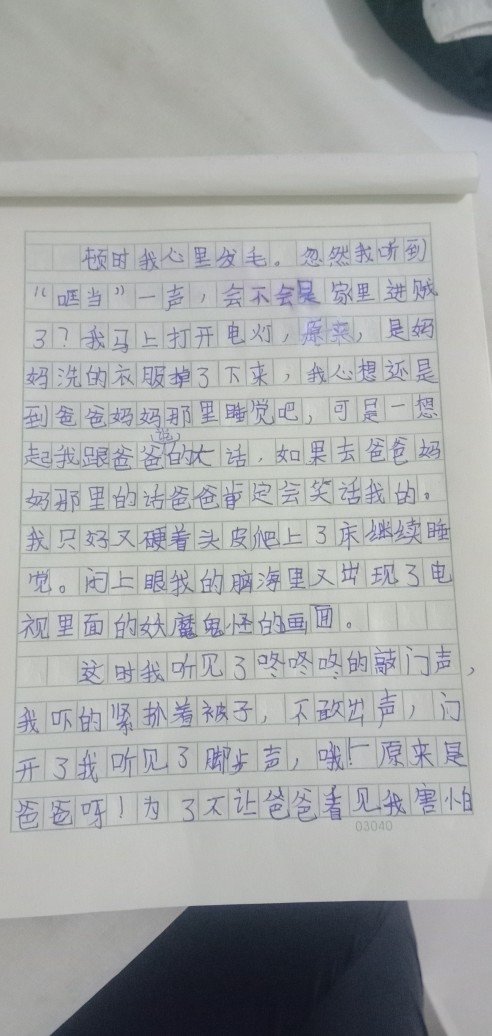 顿时我心里发毛。忽然我听到
“哐当”一声，会不会是家里进贼
了？我马上打开电灯，原来，是妈
妈洗的衣服掉了下来，我心想还是
到爸爸妈妈那里睡觉吧，可是一想
起我跟爸爸的大话，如果去爸爸妈
妈那里的话爸爸肯定会笑话我的。
我只好又硬着头皮爬上了床继续睡
觉。闭上眼我的脑海里又出现了电
视里面的妖魔鬼怪的画面。
这时我听见了咚咚咚的敲门声，
我吓的紧扒着被子，不敢出声，门
开了我听见了脚步声，哦！原来是
爸爸呀！为了不让爸爸看见我害怕
03040